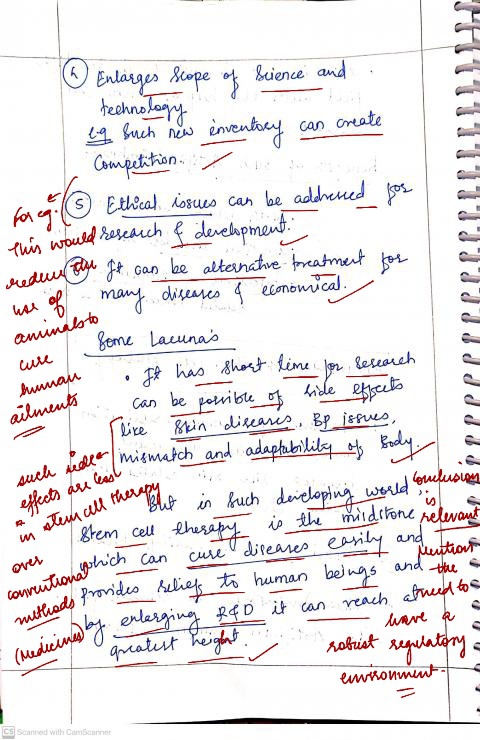 4 Enlarges Scope of Science and
technology
e.g Such new inventory can create
Competition.
5 Ethical issues can be addressed for
research & development.
It can be alternative treatment for
many diseases & economical.
Some Lacuna's
• It has short time for research
can be possible of side effects
like Skin diseases, BP issues,
mismatch and adaptability of Body
But in such developing world,
Stem cell therapy is the mildstone
which can cure diseases easily and
provides relief to human beings and
by enlarging R&D it can reach at
greatest height.
For eg.
This would
reduce the
use of
animals to
cure
human
ailments
such side
effects are less
in stem cell therapy
over
conventional
methods
(Medicines)
Conclusion
is
relevant
Mention
the
need to
have a
robust regulatory
environment.
CS Scanned with CamScanner